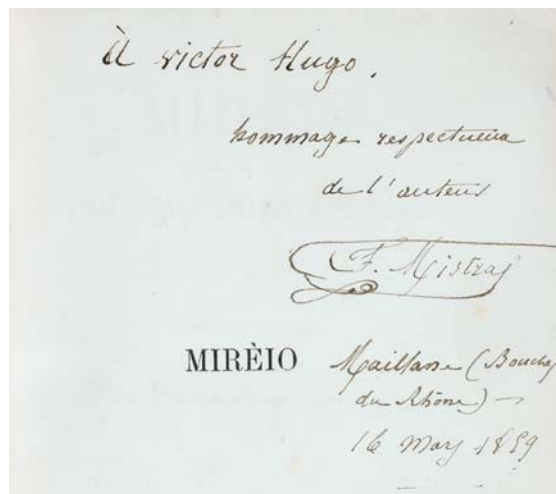 À victor Hugo.
hommage respectueux
de l'auteur
F. Mistral
MIRÈIO
Maillane (Bouches
du Rhône) —
16 mars 1859